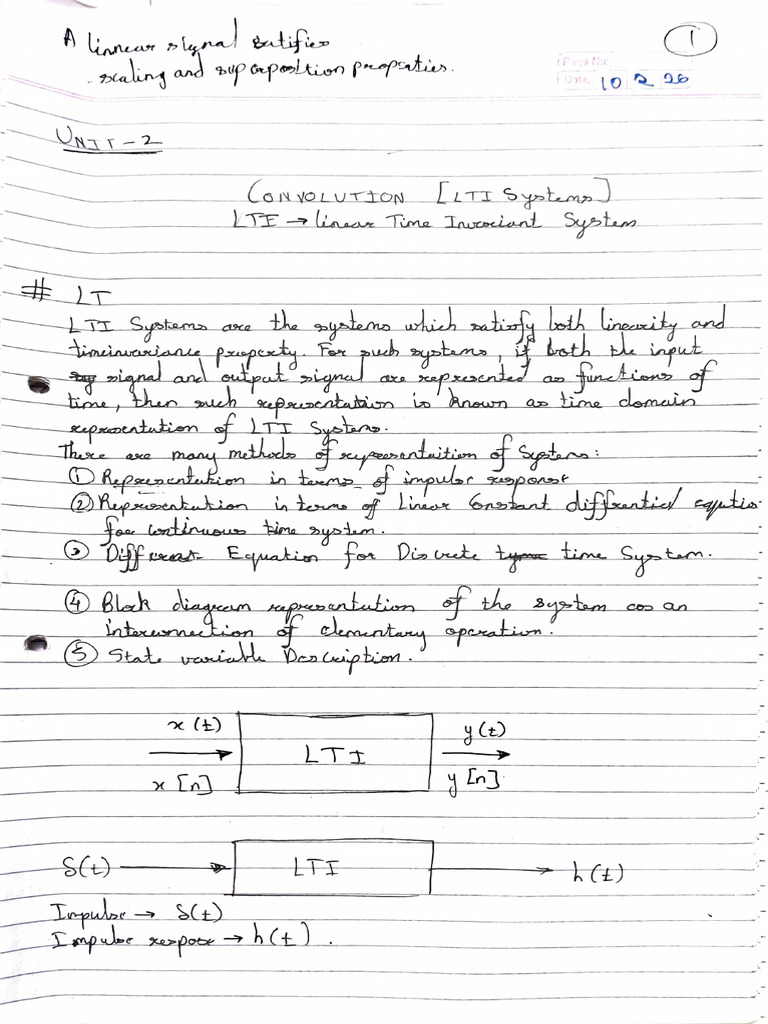 A linnear signal satifies
scaling and superposition properties.
1
Page No:
Date: 10 2 26
UNIT-2
CONVOLUTION [LTI Systems]
LTI → linear Time Invariant System
# LT
LTI Systems are the systems which satisfy both linearity and
timeinvariance property. For such systems, if both the input
signal and output signal are represented as functions of
time, then such representation is known as time domain
representation of LTI Systems.
There are many methods of representation of Systems:
① Representation in terms of impulse response
② Representation in terms of Linear Constant diffrential
for continuous time system.
③ Equation for Discrete time System.
④ Block diagram representation of the system as an
interconnection of elementary operation.
⑤ State variable Description.
x(t) LTI y(t)
x[n] y[n]
δ(t) LTI h(t)
Impulse → δ(t)
Impulse → h(t).